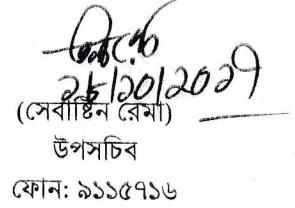 ২৫/১০/২০২৭
(সেবাষ্টিন রেমা)
উপসচিব
ফোন: ৯১১৫৭১৬